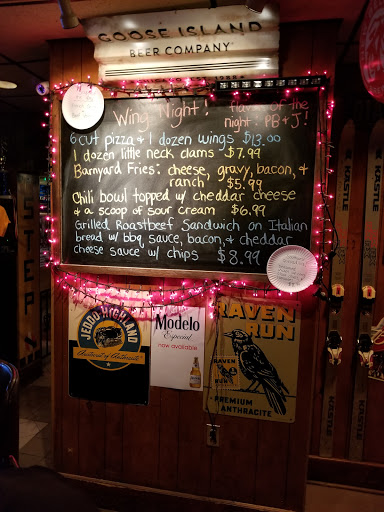 GOOSE ISLAND
BEER COMPANY
Wing Night! flavor of the
night: PB+J!
6 cut pizza & 1 dozen wings $13.00
1 dozen little neck clams - $7.99
Barnyard Fries: cheese, gravy, bacon, &
ranch $5.99
Chili bowl topped w/ cheddar cheese
& a scoop of sour cream $6.99
Grilled Roastbeef Sandwich on Italian
bread w/ bbq sauce, bacon, & cheddar
cheese sauce w/ chips $8.99
JEDDO HIGHLAND
Modelo
Especial
now available
RAVEN
RUN
RAVEN
RUN
PREMIUM
ANTHRACITE
KASTLE
KASTLE
KASTLE
STEEPS